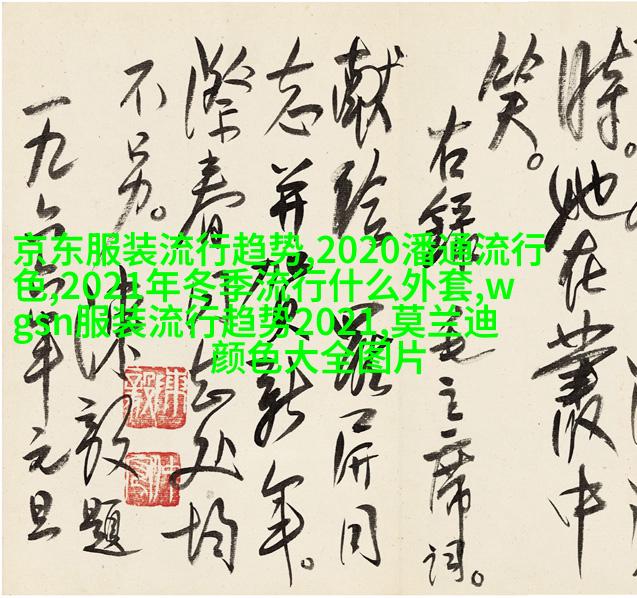 京东服装流行趋势,2020潘通流行
色,2021年冬季流行什么外套,w
gsn服装流行趋势2021,莫兰迪
颜色大全图片
時。她在叢中
笑。
右錄毛主席词。
献给羅屏同
志并賀新年。
際春同志处均
不另。
陳毅題
一九六六年元旦
陳毅